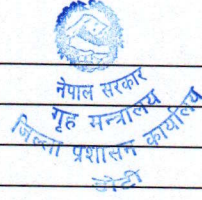 नेपाल सरकार
गृह मन्त्रालय
जिल्ला प्रशासन कार्यालय
डोटी